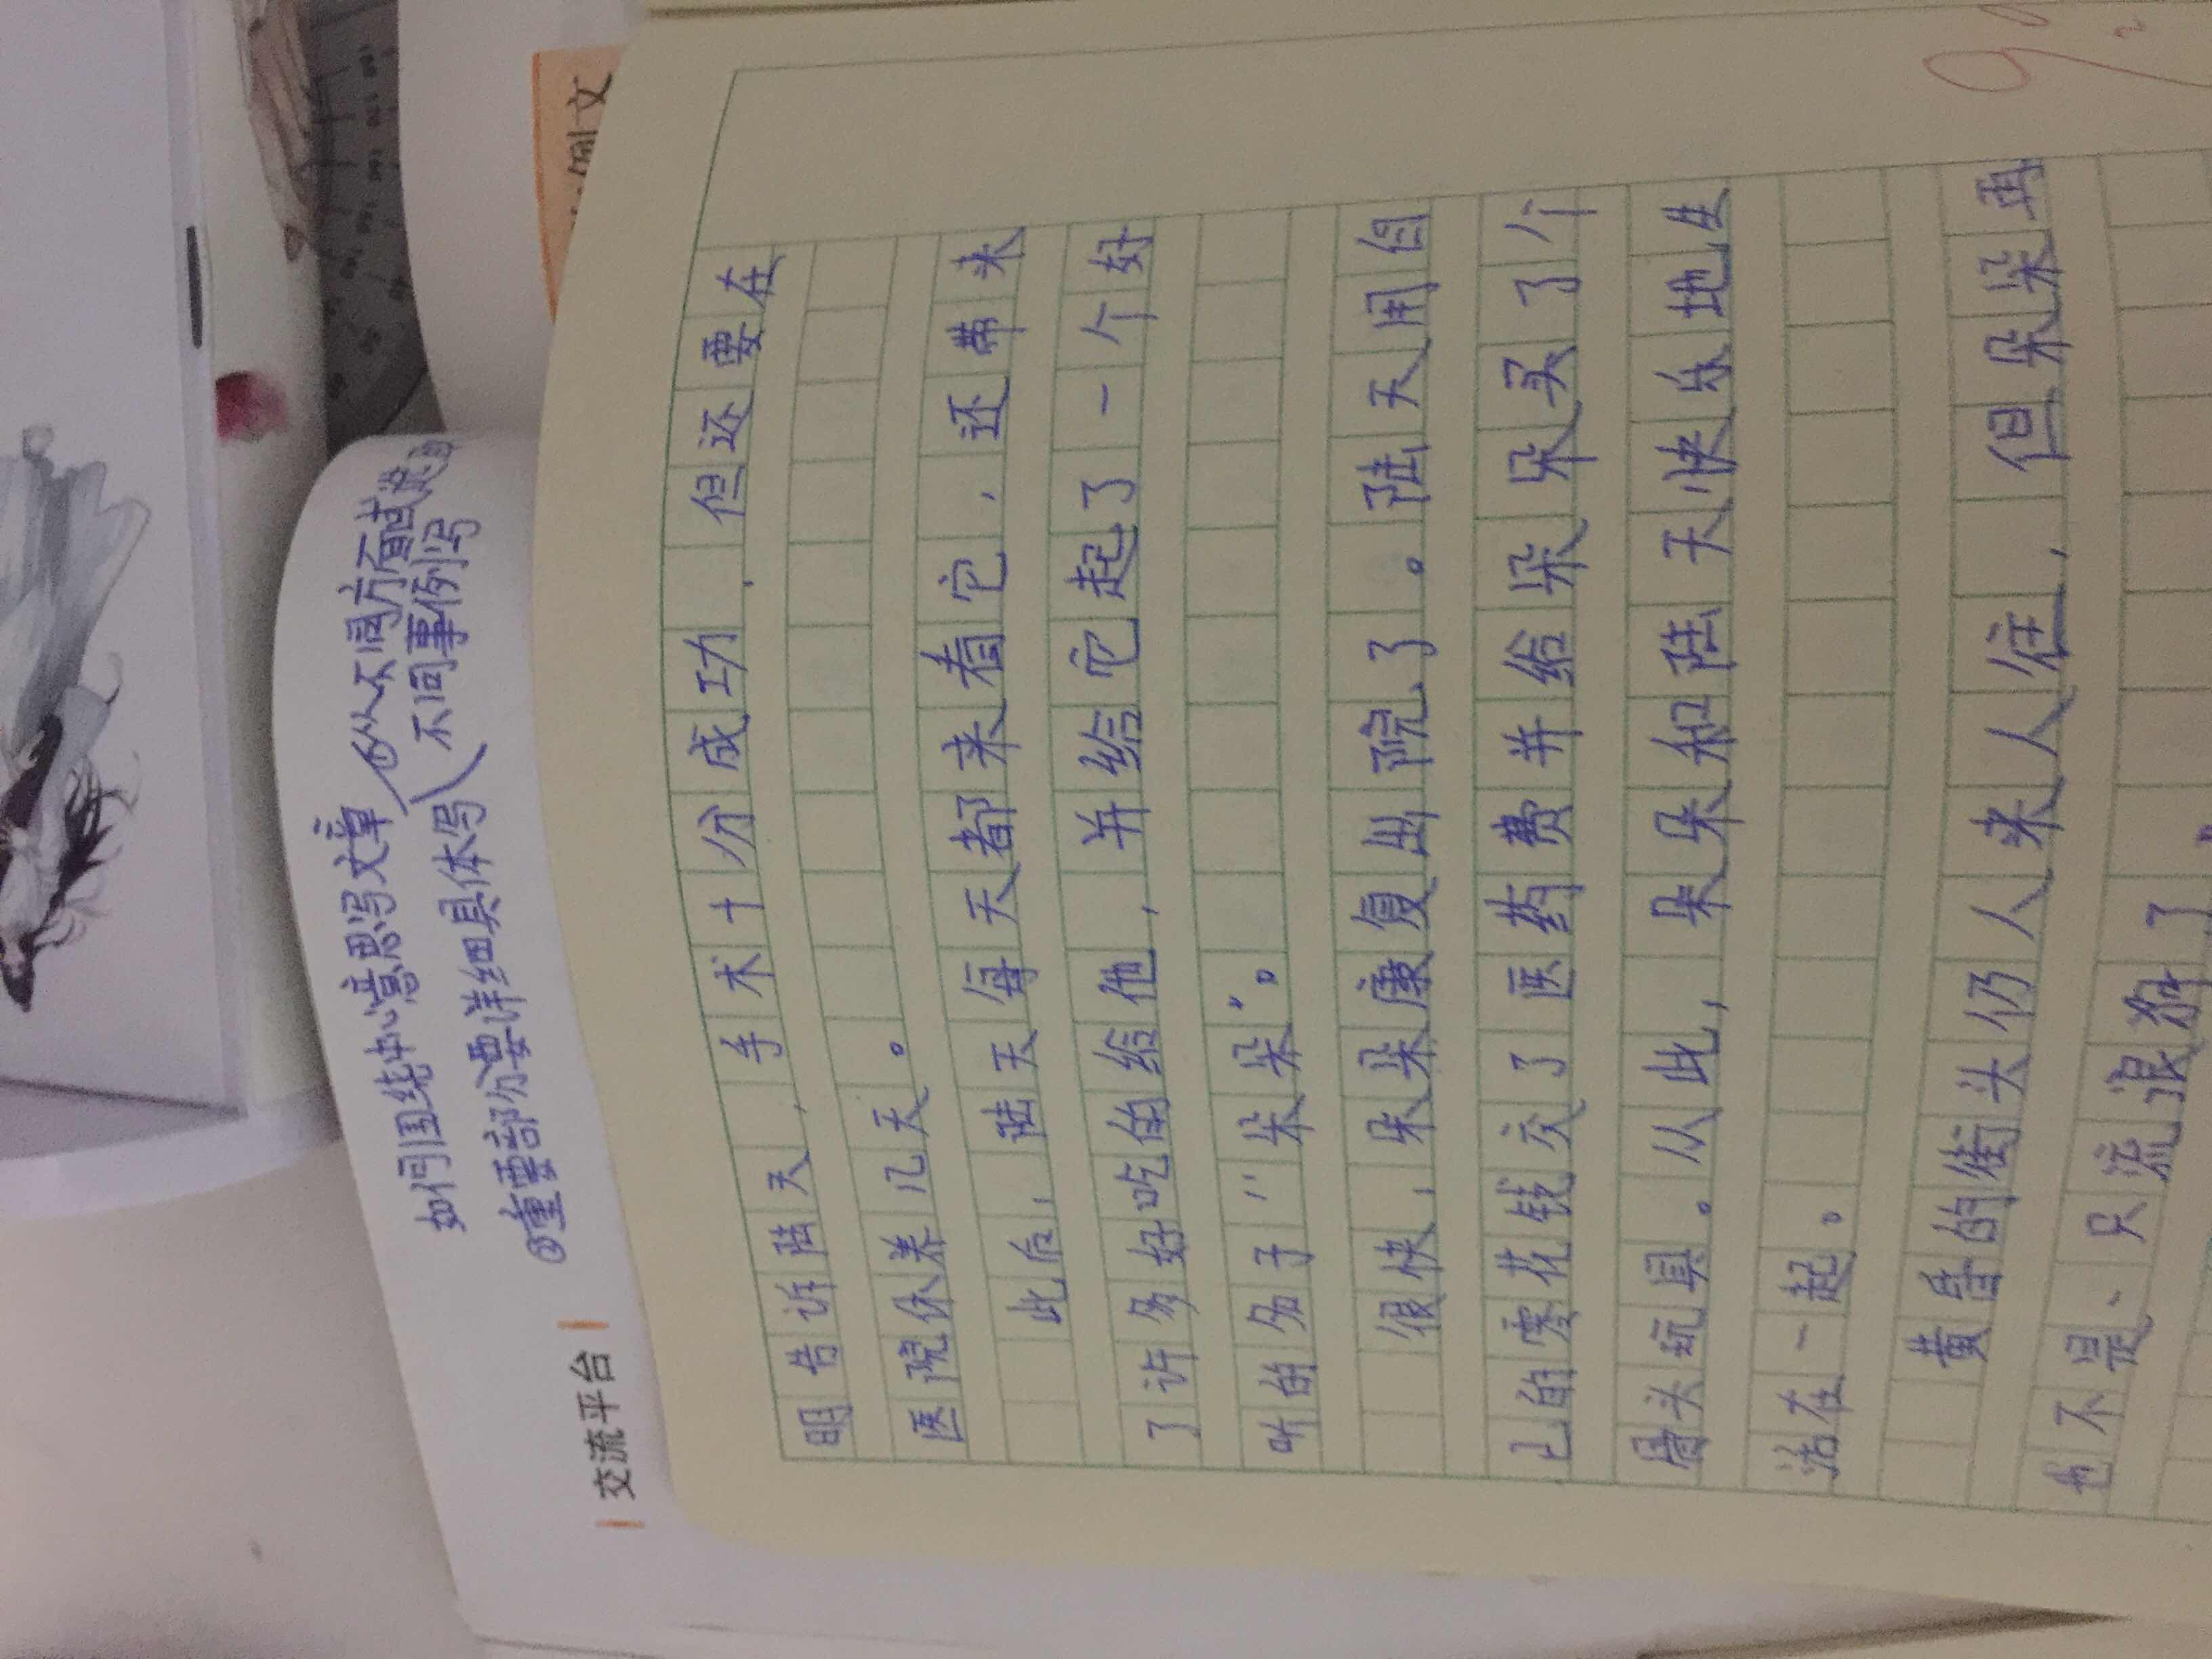 如何围绕中心意思写文章
从不同方面或
不同事例写
②重要部分要详细具体写
交流平台
例文
明告诉陆天，手术十分成功，但还要在
医院休养几天。
此后，陆天每天都来看它，还带来
了许多好吃的给他，并给它起了一个好
听的名子“朵朵”。
很快，朵朵康复出院了。陆天用自
己的零花钱交了医药费并给朵朵买了个
骨头玩具。从此，朵朵和陆天快乐地生
活在一起。
黄昏的街头仍人来人往，但朵朵再
也不是一只流浪狗了